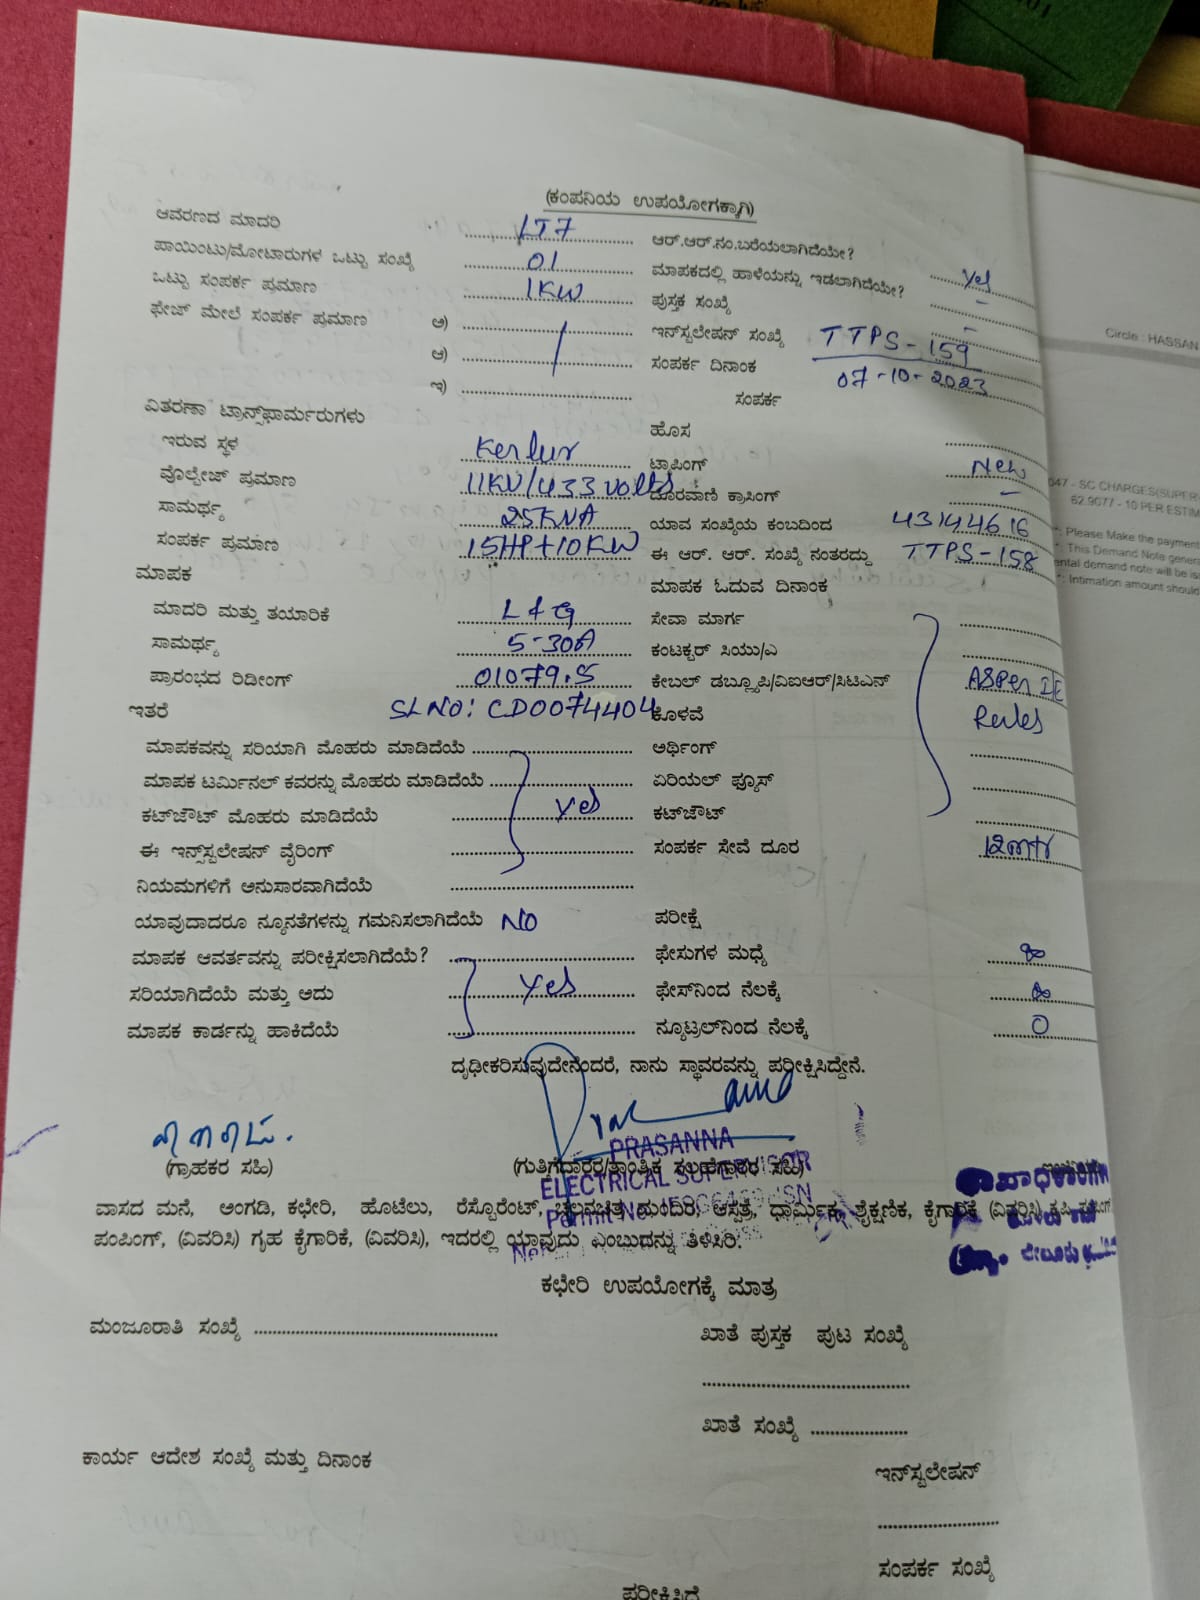 (ಕಂಪನಿಯ ಉಪಯೋಗಕ್ಕಾಗಿ)
ಆವರಣದ ಮಾದರಿ LT7 ಆರ್.ಆರ್.ನಂ.ಬರೆಯಲಾಗಿದೆಯೇ? yes
ಪಾಯಿಂಟು/ಮೋಟಾರುಗಳ ಒಟ್ಟು ಸಂಖ್ಯೆ 01 ಮಾಪಕದಲ್ಲಿ ಹಾಳೆಯನ್ನು ಇಡಲಾಗಿದೆಯೇ? –
ಒಟ್ಟು ಸಂಪರ್ಕ ಪ್ರಮಾಣ 1KW ಪುಸ್ತಕ ಸಂಖ್ಯೆ –
ಫೇಜ್ ಮೇಲೆ ಸಂಪರ್ಕ ಪ್ರಮಾಣ ಅ) ಇನ್‌ಸ್ಟಲೇಷನ್ ಸಂಖ್ಯೆ TTPS-159
ಆ) ಸಂಪರ್ಕ ದಿನಾಂಕ 07-10-2023
ಇ) ಸಂಪರ್ಕ
ವಿತರಣಾ ಟ್ರಾನ್ಸ್‌ಫಾರ್ಮರುಗಳು ಹೊಸ
ಇರುವ ಸ್ಥಳ Kerlur ಟ್ರಾಪಿಂಗ್ New
ವೊಲ್ಟೇಜ್ ಪ್ರಮಾಣ 11KV/433 volts ದೂರವಾಣಿ ಕ್ರಾಸಿಂಗ್ –
ಸಾಮರ್ಥ್ಯ 25KVA ಯಾವ ಸಂಖ್ಯೆಯ ಕಂಬದಿಂದ 43144616
ಸಂಪರ್ಕ ಪ್ರಮಾಣ 15HP+10KW ಈ ಆರ್. ಆರ್. ಸಂಖ್ಯೆ ನಂತರದ್ದು TTPS-158
ಮಾಪಕ ಮಾಪಕ ಓದುವ ದಿನಾಂಕ
ಮಾದರಿ ಮತ್ತು ತಯಾರಿಕೆ L & G ಸೇವಾ ಮಾರ್ಗ
ಸಾಮರ್ಥ್ಯ 5-30A ಕಂಟಕ್ಟರ್ ಸಿಯು/ಎ
ಪ್ರಾರಂಭದ ರಿಡೀಂಗ್ 01079.5 ಕೇಬಲ್ ಡಬ್ಲ್ಯೂಪಿ/ವಿಐಆರ್/ಸಿಟಿಎನ್ ASPer I/E
ಇತರೆ SL NO: CD0074404 ಕೊಳವೆ Rules
ಮಾಪಕವನ್ನು ಸರಿಯಾಗಿ ಮೊಹರು ಮಾಡಿದೆಯೆ ಅರ್ಥಿಂಗ್
ಮಾಪಕ ಟರ್ಮಿನಲ್ ಕವರನ್ನು ಮೊಹರು ಮಾಡಿದೆಯೆ ಏರಿಯಲ್ ಫ್ಯೂಸ್
ಕಟ್‌ಔಟ್ ಮೊಹರು ಮಾಡಿದೆಯೆ yes ಕಟ್‌ಔಟ್
ಈ ಇನ್ಸ್‌ಸ್ಟಲೇಷನ್ ವೈರಿಂಗ್ ಸಂಪರ್ಕ ಸೇವೆ ದೂರ 12mtr
ನಿಯಮಗಳಿಗೆ ಅನುಸಾರವಾಗಿದೆಯೆ
ಯಾವುದಾದರೂ ನ್ಯೂನತೆಗಳನ್ನು ಗಮನಿಸಲಾಗಿದೆಯೆ NO ಪರೀಕ್ಷೆ
ಮಾಪಕ ಆವರ್ತವನ್ನು ಪರೀಕ್ಷಿಸಲಾಗಿದೆಯೆ? ಫೇಸುಗಳ ಮಧ್ಯೆ ∞
ಸರಿಯಾಗಿದೆಯೆ ಮತ್ತು ಅದು yes ಫೇಸ್‌ನಿಂದ ನೆಲಕ್ಕೆ ∞
ಮಾಪಕ ಕಾರ್ಡನ್ನು ಹಾಕಿದೆಯೆ ನ್ಯೂಟ್ರಲ್‌ನಿಂದ ನೆಲಕ್ಕೆ 0
ದೃಢೀಕರಿಸುವುದೇನೆಂದರೆ, ನಾನು ಸ್ಥಾವರವನ್ನು ಪರೀಕ್ಷಿಸಿದ್ದೇನೆ.
PRASANNA
(ಗ್ರಾಹಕರ ಸಹಿ) (ಗುತ್ತಿಗೆದಾರರ/ತಾಂತ್ರಿಕ ಸಲಹೆಗಾರರ ಸಹಿ)
ELECTRICAL SUPERVISOR
Permit No
ವಾಸದ ಮನೆ, ಅಂಗಡಿ, ಕಛೇರಿ, ಹೊಟೆಲು, ರೆಸ್ಟೊರೆಂಟ್, ಚಲನಚಿತ್ರ ಮಂದಿರ, ಆಸ್ಪತ್ರೆ, ಧಾರ್ಮಿಕ, ಶೈಕ್ಷಣಿಕ, ಕೈಗಾರಿಕೆ (ವಿವರಿಸಿ)
ಪಂಪಿಂಗ್, (ವಿವರಿಸಿ) ಗೃಹ ಕೈಗಾರಿಕೆ, (ವಿವರಿಸಿ), ಇದರಲ್ಲಿ ಯಾವುದು ಎಂಬುದನ್ನು ತಿಳಿಸಿರಿ.
ಕಛೇರಿ ಉಪಯೋಗಕ್ಕೆ ಮಾತ್ರ
ಮಂಜೂರಾತಿ ಸಂಖ್ಯೆ ಖಾತೆ ಪುಸ್ತಕ ಪುಟ ಸಂಖ್ಯೆ
ಖಾತೆ ಸಂಖ್ಯೆ
ಕಾರ್ಯ ಆದೇಶ ಸಂಖ್ಯೆ ಮತ್ತು ದಿನಾಂಕ
ಇನ್‌ಸ್ಟಲೇಷನ್
ಸಂಪರ್ಕ ಸಂಖ್ಯೆ
ಪರೀಕ್ಷಿಸಿದೆ
Circle : HASSAN
047 - SC CHARGES(SUPER
62.9077 - 10 PER ESTIM
*: Please Make the payment
*: This Demand Note gener
ental demand note will be is
*: Intimation amount should